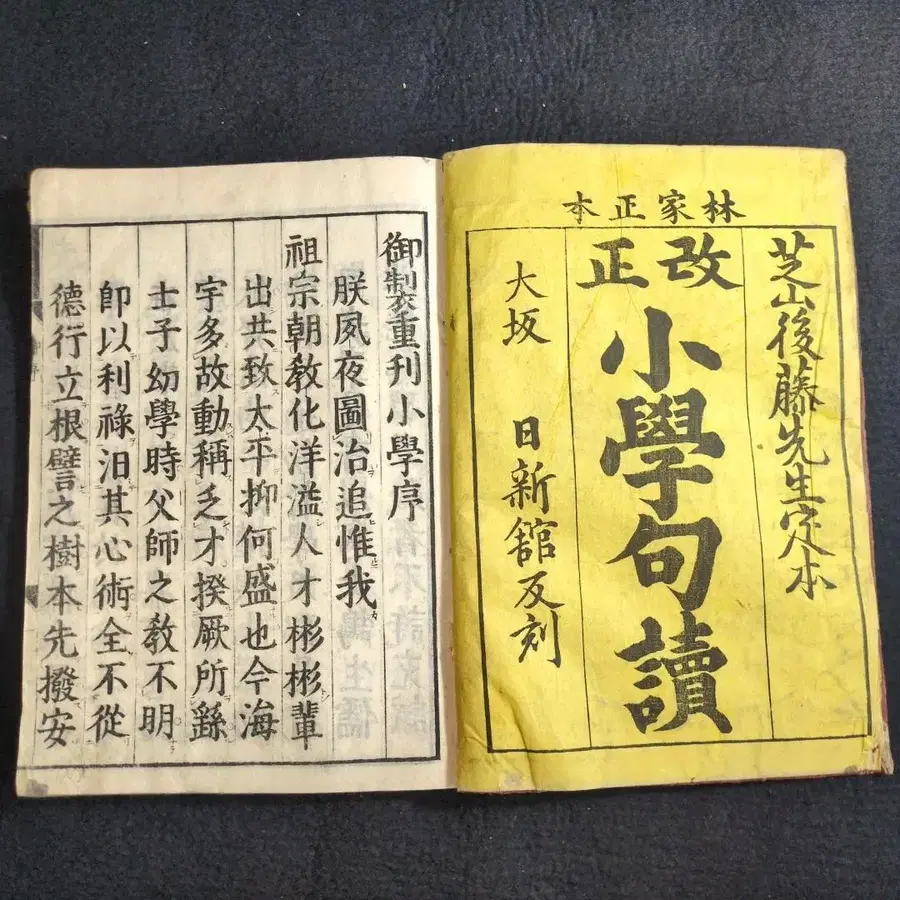 林家正本
芝山後藤先生定本
改正
小學句讀
大坂 日新館反刻
御製重刊小學序
朕夙夜圖治追惟我
祖宗朝敎化洋溢人才彬彬輩
出共致太平抑何盛也今海
宇多故動稱乏才揆厥所繇
士子幼學時父師之敎不明
卽以利祿汨其心術全不從
德行立根譬之樹本先撥安